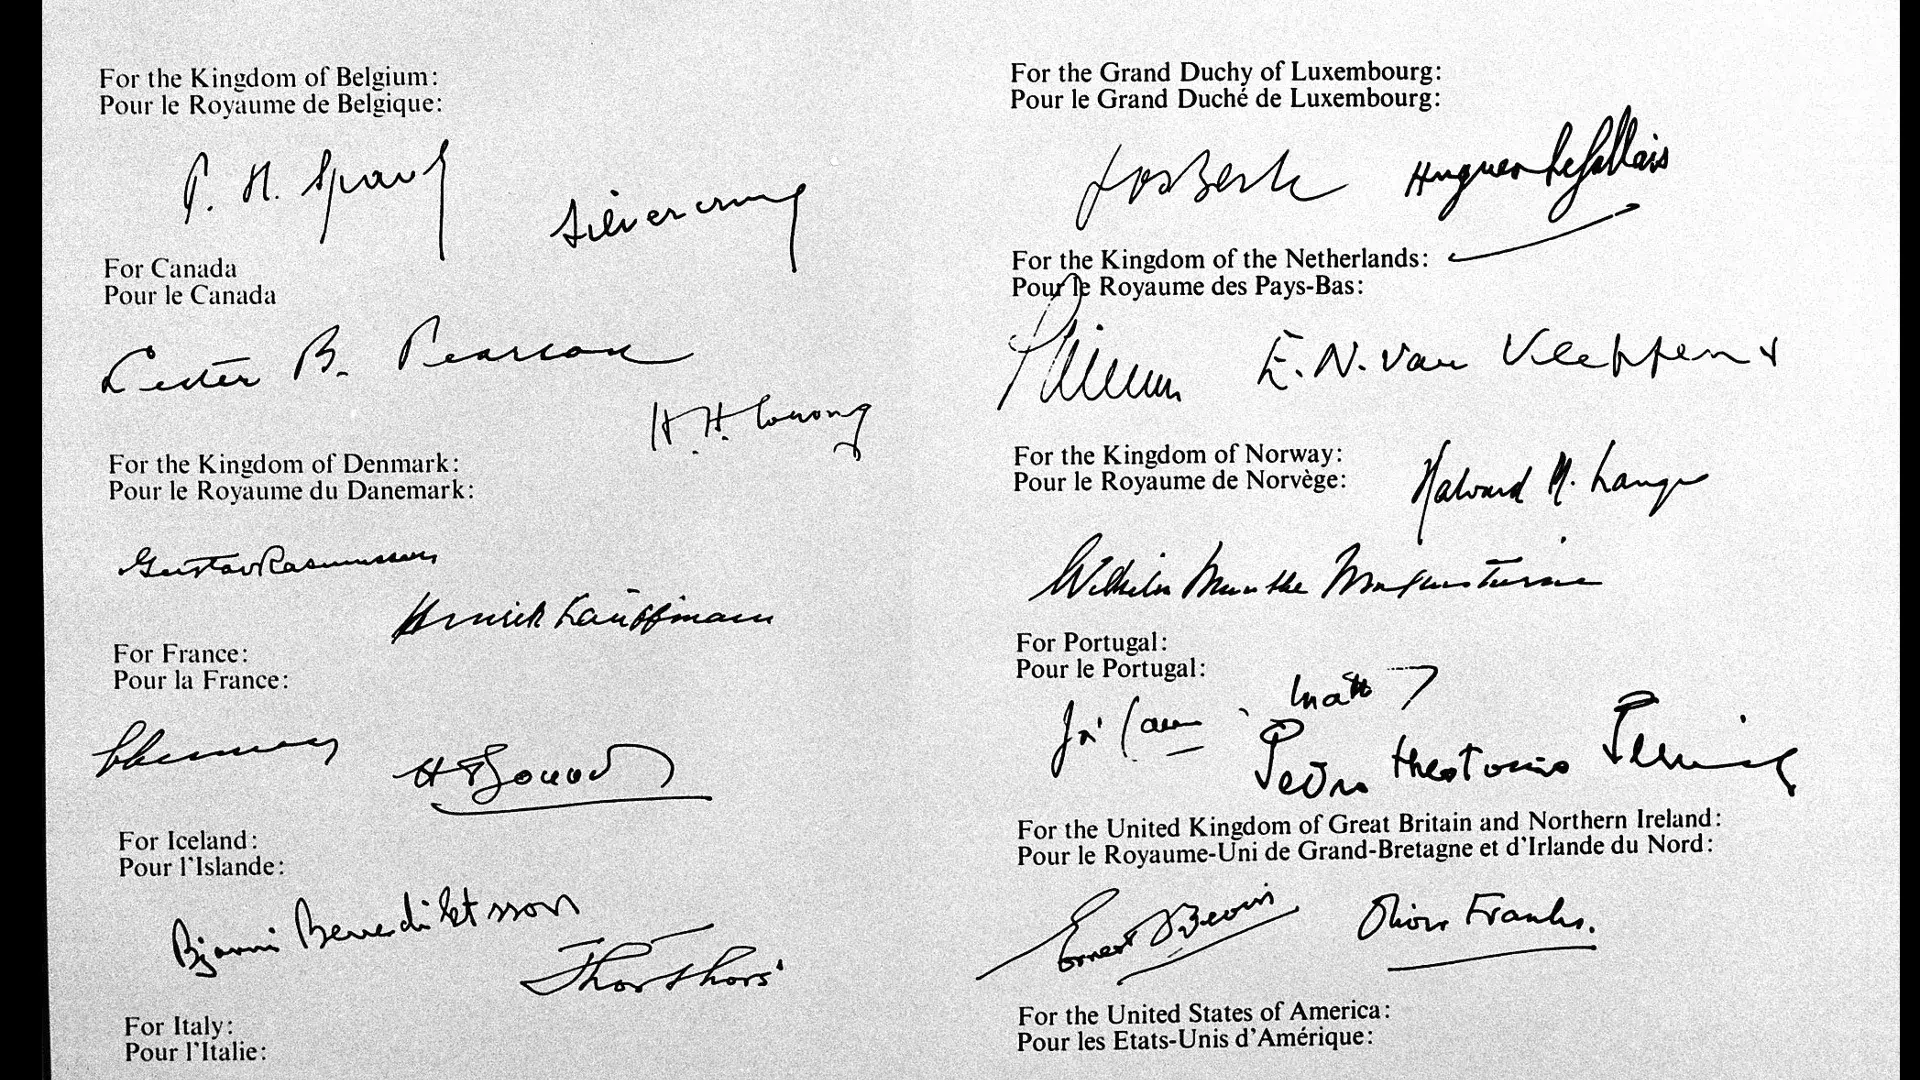 For the Kingdom of Belgium:
Pour le Royaume de Belgique:
P. H. Spaak
Silvercruys
For Canada
Pour le Canada
Lester B. Pearson
H. H. Wrong
For the Kingdom of Denmark:
Pour le Royaume du Danemark:
Gustav Rasmussen
Henrik Kauffmann
For France:
Pour la France:
H Bonnet
For Iceland:
Pour l'Islande:
Bjarni Benediktsson
Thor Thors
For Italy:
Pour l'Italie:
For the Grand Duchy of Luxembourg:
Pour le Grand Duché de Luxembourg:
Jos Bech
Hugues Le Gallais
For the Kingdom of the Netherlands:
Pour le Royaume des Pays-Bas:
E. N. van Kleffens
For the Kingdom of Norway:
Pour le Royaume de Norvège:
Halvard M. Lange
Wilhelm Munthe Morgenstierne
For Portugal:
Pour le Portugal:
Pedro Theotonio Pereira
For the United Kingdom of Great Britain and Northern Ireland:
Pour le Royaume-Uni de Grand-Bretagne et d'Irlande du Nord:
Ernest Bevin
Oliver Franks.
For the United States of America:
Pour les Etats-Unis d'Amérique: